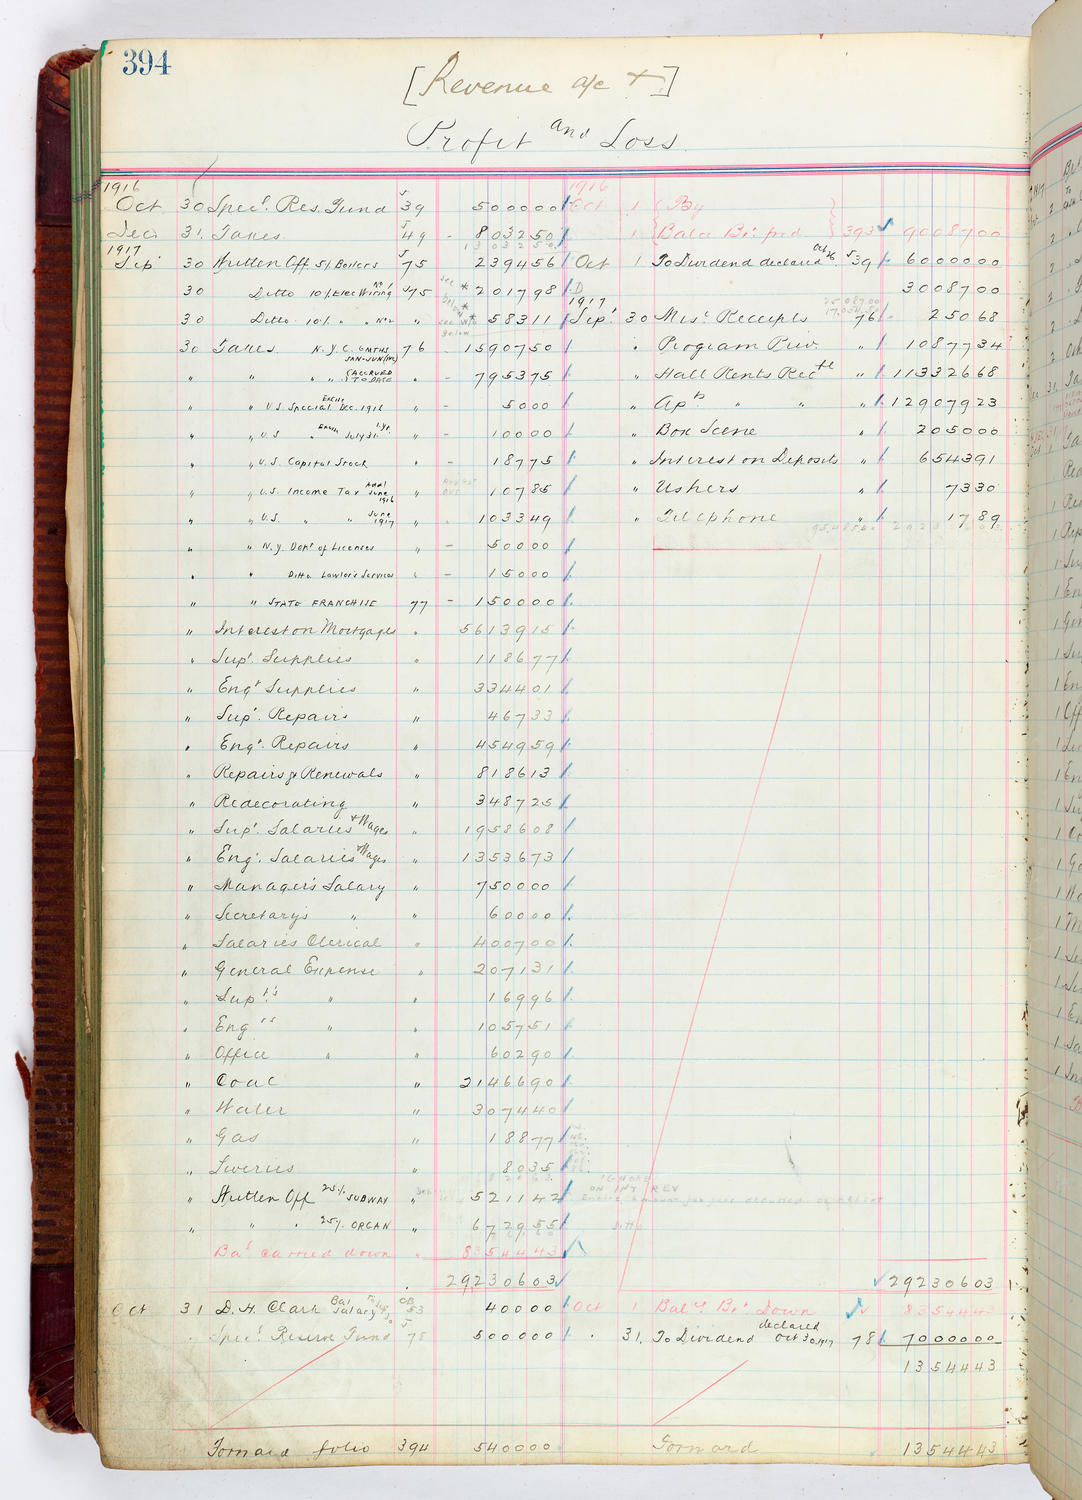 394
[Revenue a/c +]
Profit and Loss
1916 1916
Oct 30 Specl. Res. Fund 5 39 500000 Oct 1 By
Dec 31. Taxes 5 49 - 803250 1 Balce Bt. fwd 393 9008700
1303250
1917
Sep 30 Written Off 5% Boilers 5 75 239456 Oct 1 To Dividend declared Oct 5 39 6000000
30 Ditto 10% Elec Wiring No 1 5 75 see * below 201798 3008700
1917
30 Ditto 10% " " No 2 " * 58311 Sep. 30 Misc. Receipts 76 25068
30 Taxes. N.Y.C. 6 MTHS JAN-JUN 76 1590750 " Program Priv. " 1087734
" " " " (ACCRUED TO DATE " - 795375 " Hall Rents Rec " 11332668
" " U.S Special Dec. 1916 " - 5000 " Apts " " " 12907923
" " U.S " July 31 " - 10000 " Box Scene " 205000
" " U.S. Capital Stock " - 18775 " Interest on Deposits " 654391
" " U.S. Income Tax Addl June 1916 " 10785 " Ushers " 7330
" " U.S. " " June 1917 " 103349 " Telephone " 1789
" " N.Y. Dept of Licences " - 50000
" " Ditto Lawlor's Services " - 15000
" " STATE FRANCHISE 77 - 150000
" Interest on Mortgages " 5613915
" Supt. Supplies " 118677
" Engr Supplies " 334401
" Supt. Repairs " 46733
" Engr. Repairs " 454959
" Repairs & Renewals " 818613
" Redecorating " 348725
" Supt. Salaries + Wages " 1958608
" Engr. Salaries + Wages " 1353673
" Manager's Salary " 750000
" Secretary's " " 60000
" Salaries Clerical " 400700
" General Expense " 207131
" Supt's " " 16996
" Engr's " " 105751
" Office " " 60290
" Coal " 2146690
" Water " 307440
" Gas " 18877
" Liveries " 8035
IGNORE
ON INT REV
" Written Off 25% SUBWAY " 521142
" " " 25% ORGAN " 672955 Ditto
Bal carried down " 8354443
29230603 29230603
Oct 31 D. H. Clark Bal Salary CB 53 40000 Oct 1 Balce Bt. Down 8354443
" Specl. Reserve Fund 5 78 500000 " 31. To Dividend declared Oct 30, 1917 78 7000000
1354443
Forward folio 394 540000 Forward 1354443